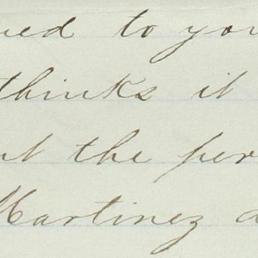 to you
thinks it
the per
Martinez